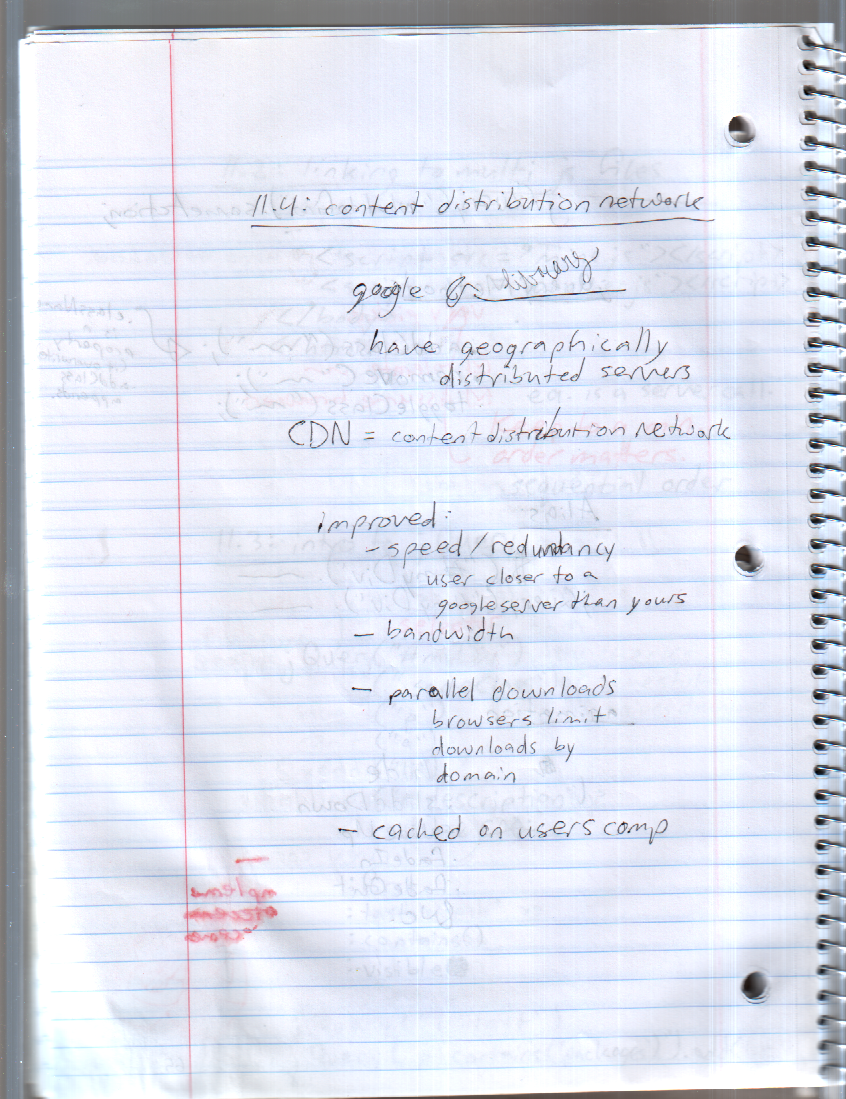 11.4: content distribution network
google library
have geographically
distributed servers
CDN = content distribution network
improved:
- speed / redundancy
user closer to a
google server than yours
- bandwidth
- parallel downloads
browsers limit
downloads by
domain
- cached on users comp